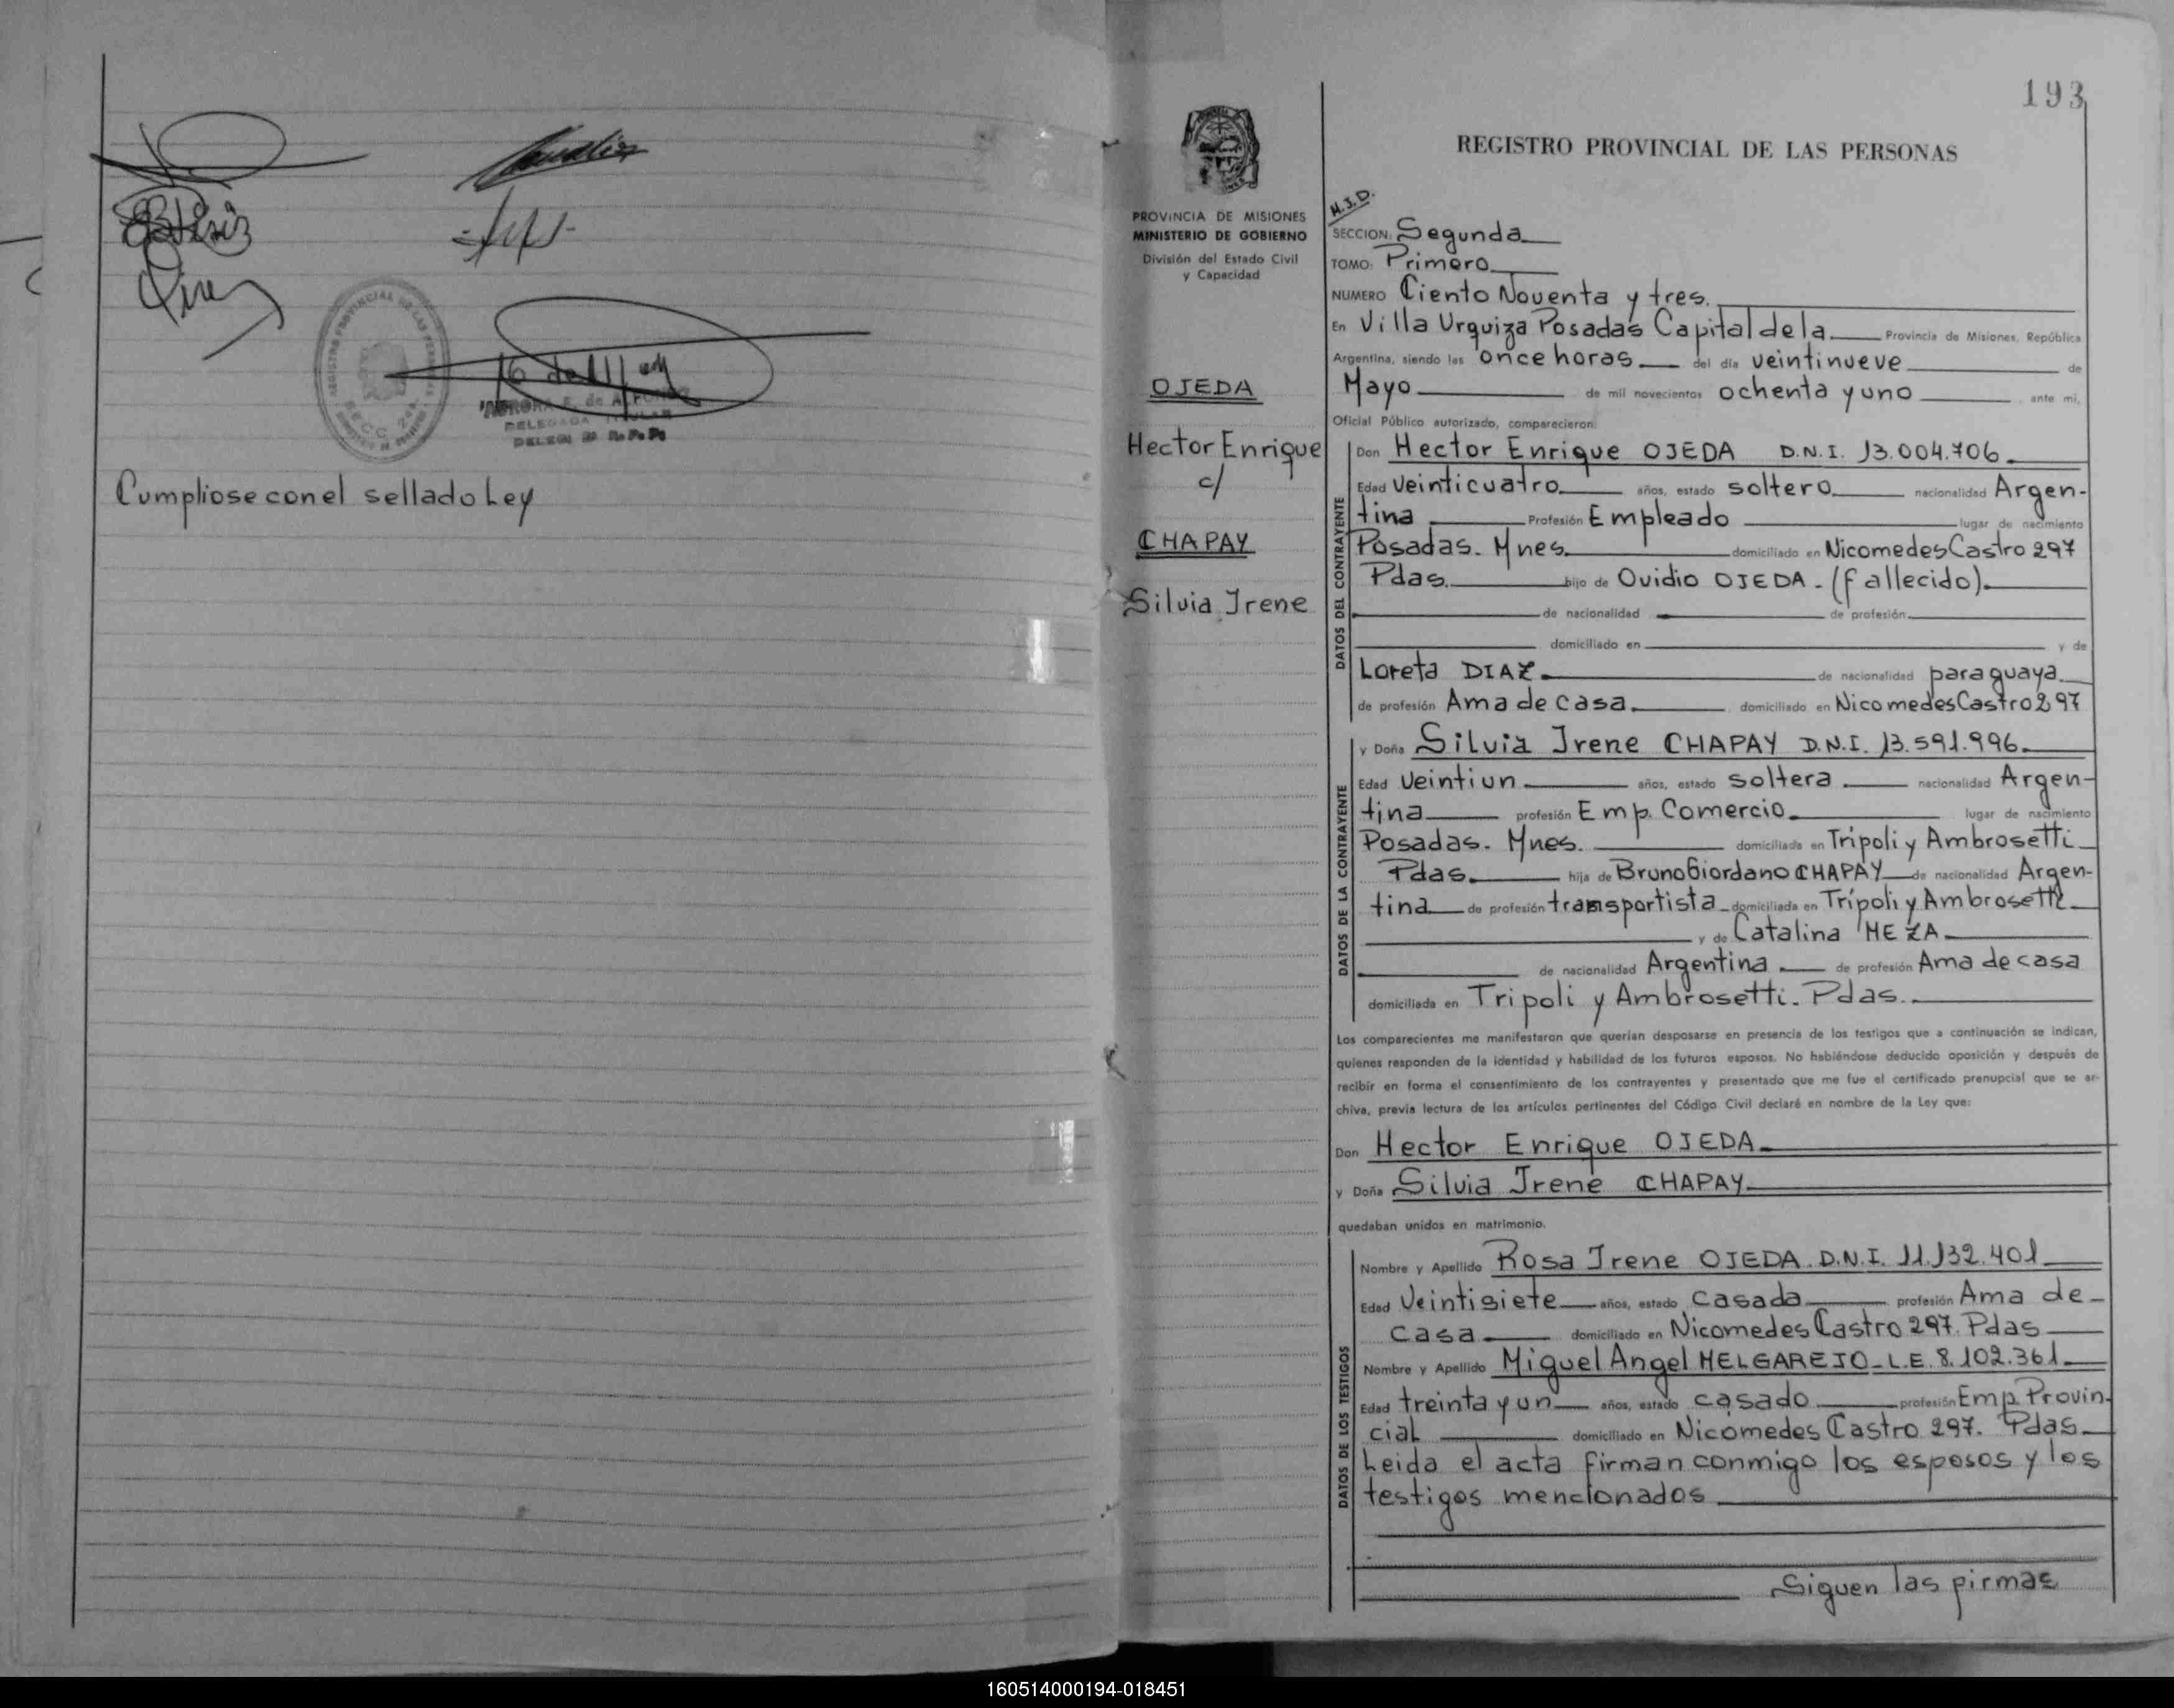 Cumpliose con el sellado Ley
193
REGISTRO PROVINCIAL DE LAS PERSONAS
PROVINCIA DE MISIONES
MINISTERIO DE GOBIERNO
División del Estado Civil
y Capacidad
OJEDA
Hector Enrique
c/
CHAPAY
Silvia Irene
M.I.D.
SECCION: Segunda
TOMO: Primero
NUMERO Ciento Noventa y tres.
En Villa Urquiza Posadas Capital de la Provincia de Misiones, República
Argentina, siendo las once horas del día veintinueve de
Mayo de mil novecientos ochenta y uno, ante mí,
Oficial Público autorizado, comparecieron:
DATOS DEL CONTRAYENTE
Don Hector Enrique OJEDA D.N.I. 13.004.706.
Edad Veinticuatro años, estado soltero nacionalidad Argen-
tina Profesión Empleado lugar de nacimiento
Posadas. Mnes. domiciliado en Nicomedes Castro 297
Pdas. hijo de Ovidio OJEDA - (fallecido).
de nacionalidad de profesión
domiciliado en y de
Loreta DIAZ. de nacionalidad paraguaya.
de profesión Ama de casa. domiciliado en Nicomedes Castro 297
DATOS DE LA CONTRAYENTE
y Doña Silvia Irene CHAPAY D.N.I. 13.591.996.
Edad Veintiun años, estado soltera nacionalidad Argen-
tina profesión Emp. Comercio. lugar de nacimiento
Posadas. Mnes. domiciliada en Tripoli y Ambrosetti
Pdas. hija de Bruno Giordano CHAPAY de nacionalidad Argen-
tina de profesión transportista domiciliada en Trípoli y Ambrosetti
y de Catalina MEZA
de nacionalidad Argentina de profesión Ama de casa
domiciliada en Tripoli y Ambrosetti. Pdas.
Los comparecientes me manifestaron que querían desposarse en presencia de los testigos que a continuación se indican,
quienes responden de la identidad y habilidad de los futuros esposos. No habiéndose deducido oposición y después de
recibir en forma el consentimiento de los contrayentes y presentado que me fue el certificado prenupcial que se ar-
chiva, previa lectura de los artículos pertinentes del Código Civil declaré en nombre de la Ley que:
Don Hector Enrique OJEDA
y Doña Silvia Irene CHAPAY
quedaban unidos en matrimonio.
DATOS DE LOS TESTIGOS
Nombre y Apellido Rosa Irene OJEDA. D.N.I. 11.132.401
Edad Veintisiete años, estado Casada profesión Ama de
casa domiciliado en Nicomedes Castro 297. Pdas
Nombre y Apellido Miguel Angel MELGAREJO - L.E. 8.102.361
Edad treinta y un años, estado casado profesión Emp. Provin-
cial domiciliado en Nicomedes Castro 297. Pdas
Leida el acta firman conmigo los esposos y los
testigos mencionados
Siguen las firmas
160514000194-018451